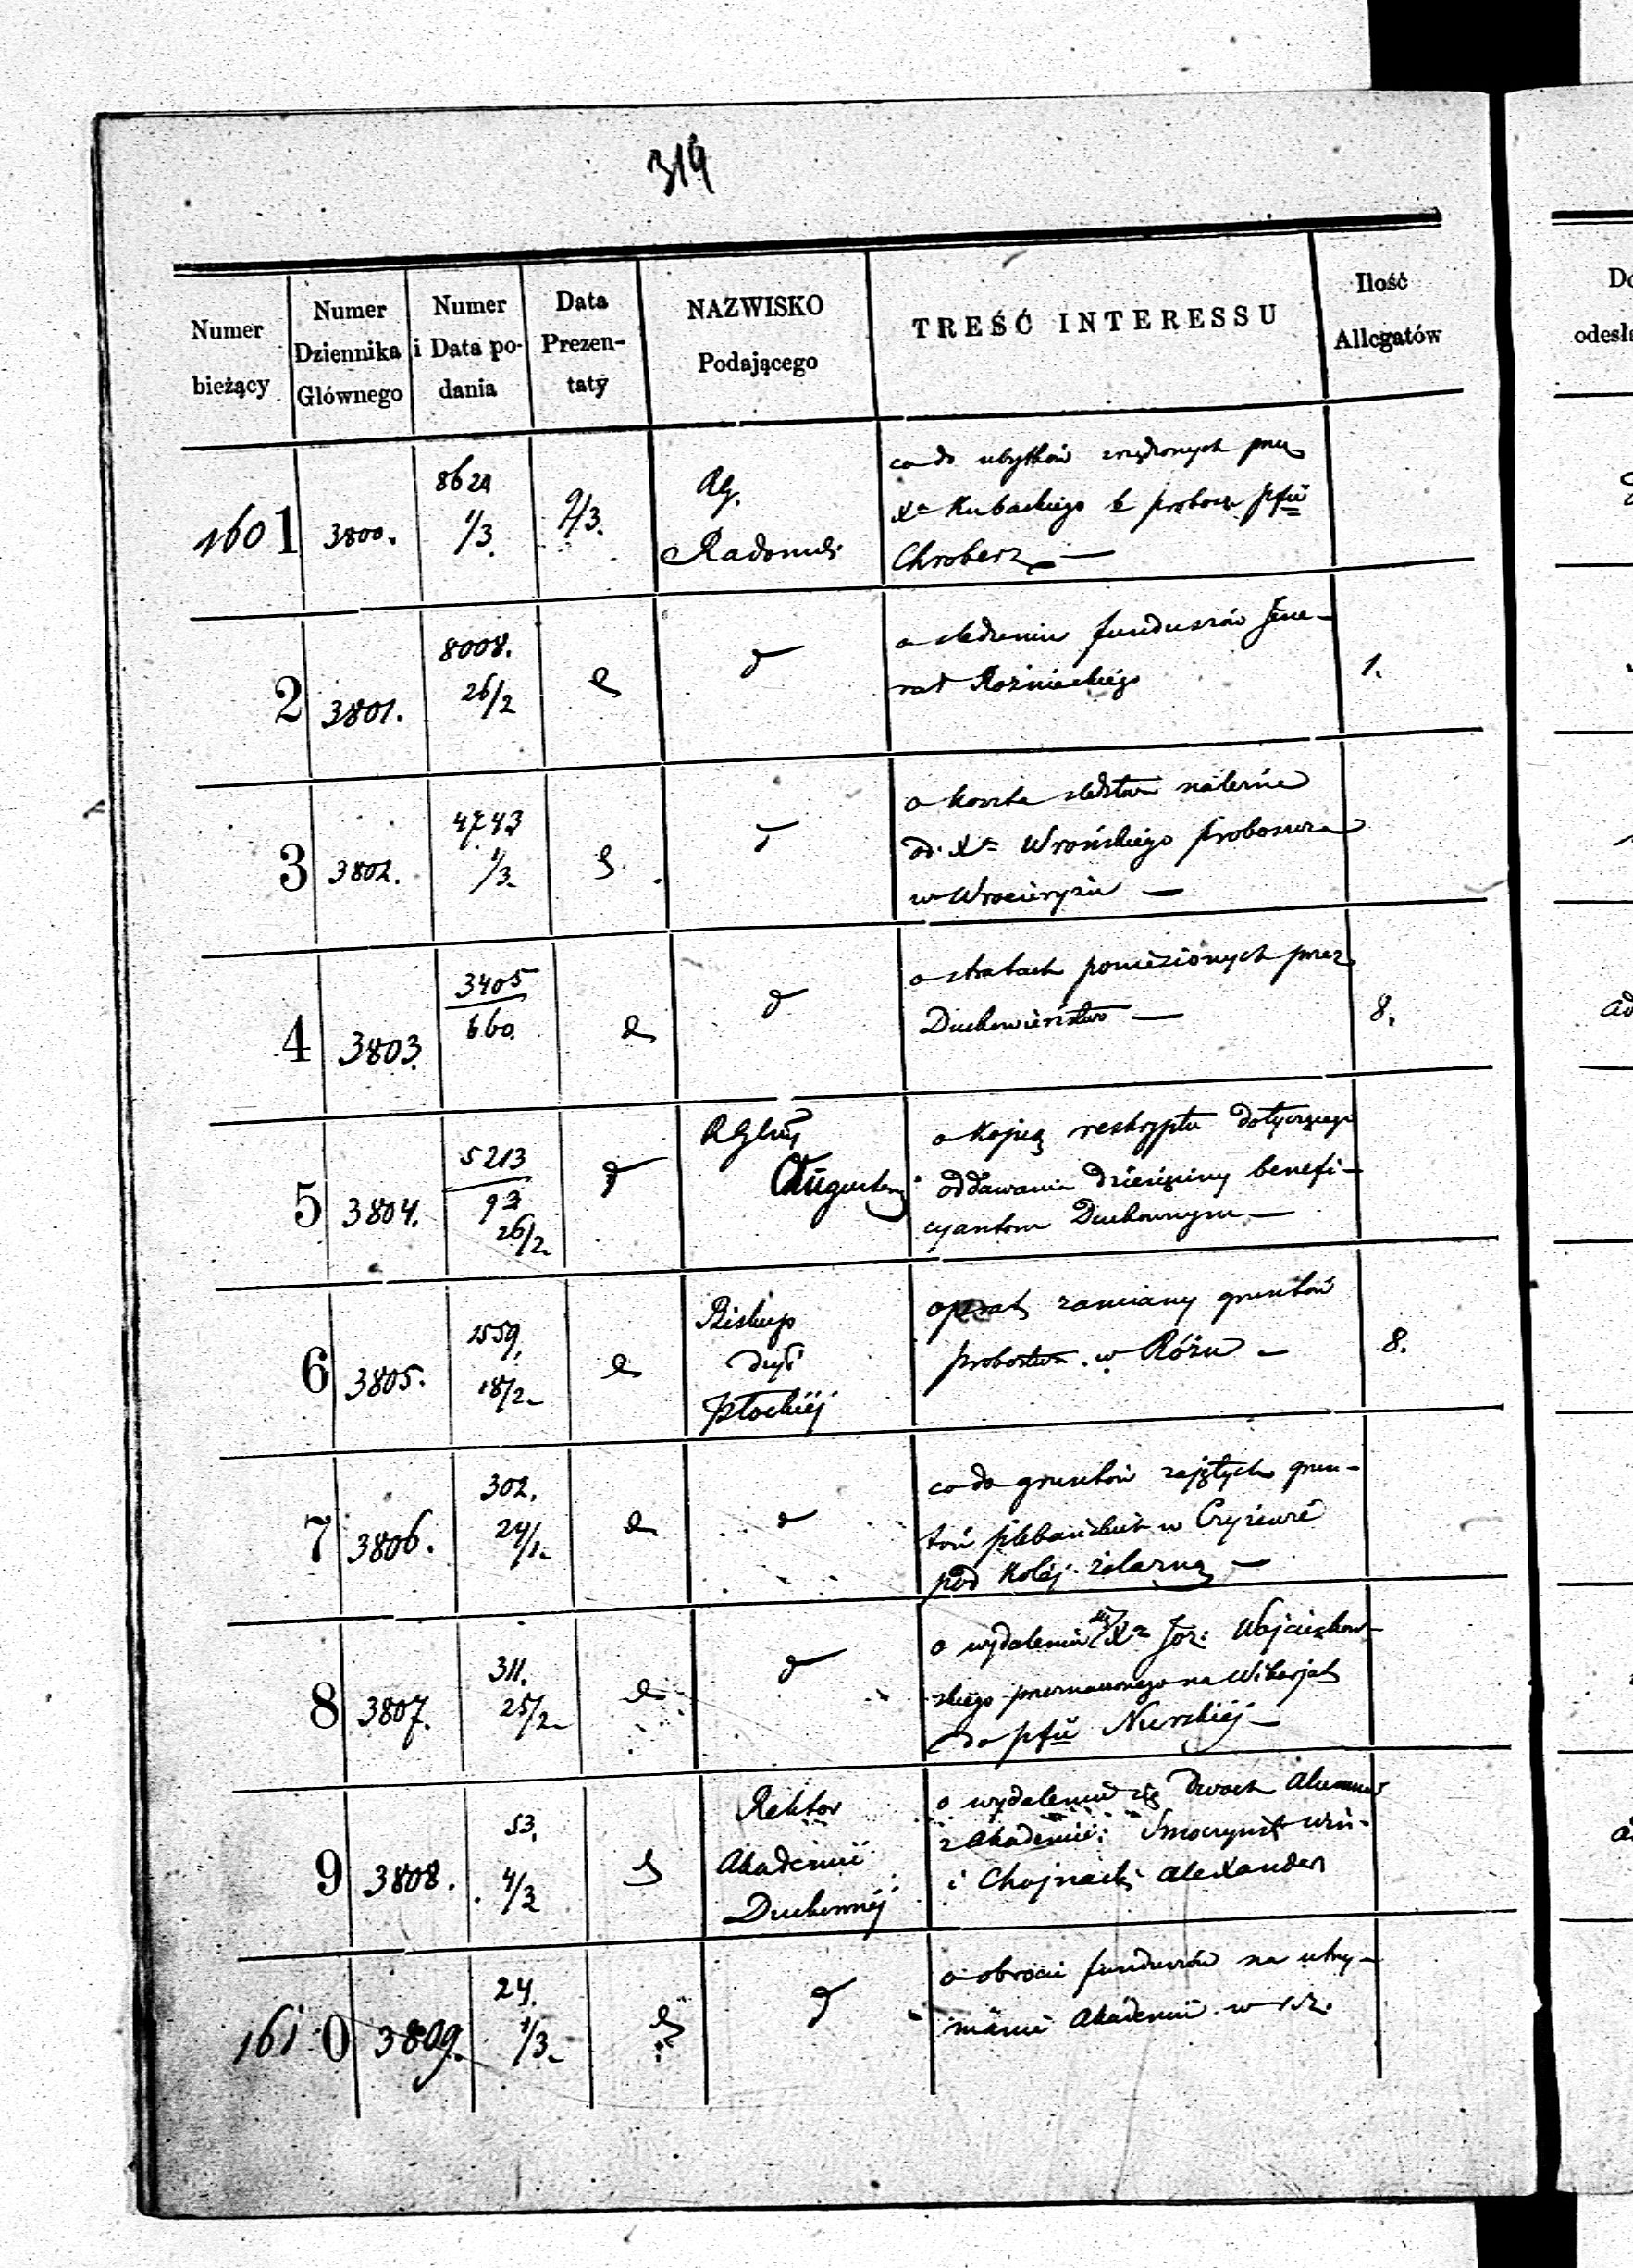 319
Numer bieżący
Numer Dziennika Głównego
Numer i Data podania
Data Prezentaty
NAZWISKO Podającego
TREŚĆ INTERESSU
Ilość Allegatów
1601 3800. 1/3 9/3. RG. Radomski
co do ubytków
Xa Kubackiego b. probosz pfii
Chroberz —
2 3801. 8008. 26/2
o śledzeniu funduszów Jene-
rał Rożnieckiego
1.
3 3802. 4743 1/3.
o koszta śledztwa należne
od Xa Wrońskiego proboszcza
w Wrocieryżu —
4 3803. 3405 660.
o stratach poniesionych przez
Duchowieństwo —
8.
5 3804. 5213 93 26/2. RGbny Augustow:
o kopią reskryptu dotyczącego
oddawania dziesięciny benefi-
cyantom Duchownym —
6 3805. 1559. 18/2. Biskup Dyi Płockiej
zamiany gruntów
probostwa w Różu —
8.
7 3806. 302. 24/1.
co do gruntów zajętych grun-
tów plebańskich w Czyżewie
pod Kolej żelazną —
8 3807. 311. 25/2.
o wydaleniu się Xa Joz: Wojciechow-
skiego przeznaczonego na Wikarjat
do pfii Nurskiej —
9 3808. 53. 4/3 Rektor Akademii Duchownej
o wydaleniu się dwóch Alumnów
z Akademii:
i Chojnacki Alexander
1610 3809. 24. 1/3.
o obrocie funduszów na utrzy-
manie Akademii w